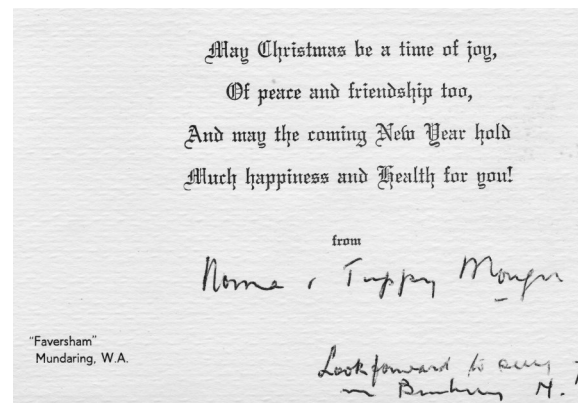 May Christmas be a time of joy,
Of peace and friendship too,
And may the coming New Year hold
Much happiness and Health for you!
from
Tuppy
"Faversham"
Mundaring, W.A.
Look forward to
Bunbury